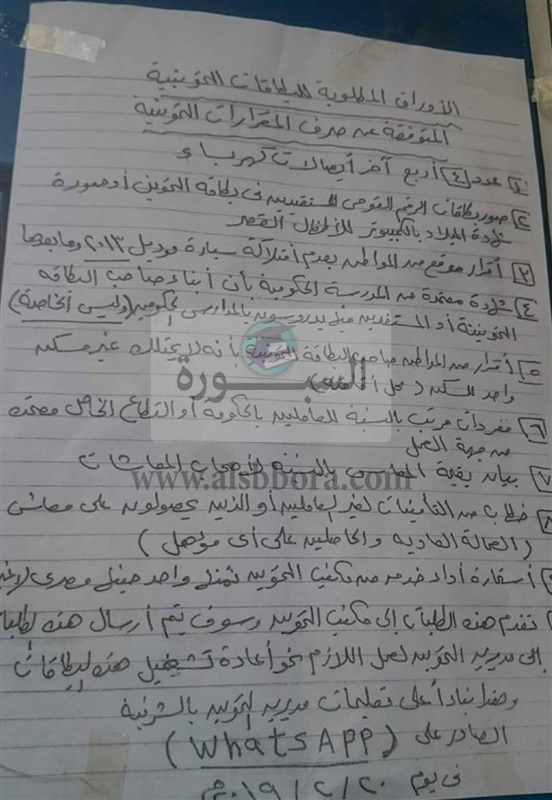 الأوراق المطلوبة للبطاقات التموينية
المتوقفة عن صرف المقررات التموينية
١) عدد (٤) أربع آخر أيصالات كهرباء
٢) صور بطاقات الرقم القومى للمستفيدين فى بطاقة التموين أو صورة
شهادة الميلاد بالكمبيوتر للأطفال القصر
٣) أقرار موقع من المواطن بعدم أمتلاكه سيارة موديل ٢٠١٣ وما بعدها
٤) شهادة معتمدة من المدرسة الحكومية بأن أبناء صاحب البطاقة
التموينية أو المستفدين ممن يدرسون بالمدارس الحكومية (وليس الخاصة)
٥) أقرار من المواطن صاحب البطاقة التموينية بأنه لا يمتلك غير مسكن
واحد للسكن (محل أقامته)
السبورة
٦) مفردات مرتب بالنسبة للعاملين بالحكومة أو القطاع الخاص معتمده
من جهة العمل
٧) بيان بقيمة المعاش بالنسبة لأصحاب المعاشات
www.alsbbora.com
٨) خطاب من التأمينات لغير العاملين أو الذين يحصلون على معاش
(العمالة العاديه والحاصلين على أى مؤهل)
أستمارة أداء خدمه من مكتب التموين بثمن واحد جنيه مصرى لاغير
تقدم هذه الطلبات إلى مكتب التموين وسوف يتم أرسال هذه الطلبات
إلى مديرية التموين لعمل اللازم نحو أعادة تشغيل هذه البطاقات
وهذا بناداً على تعليمات مديرية التموين بالشرقية
الصادر على (WhatsApp)
فى يوم ٢٠/٢/٢٠١٩م